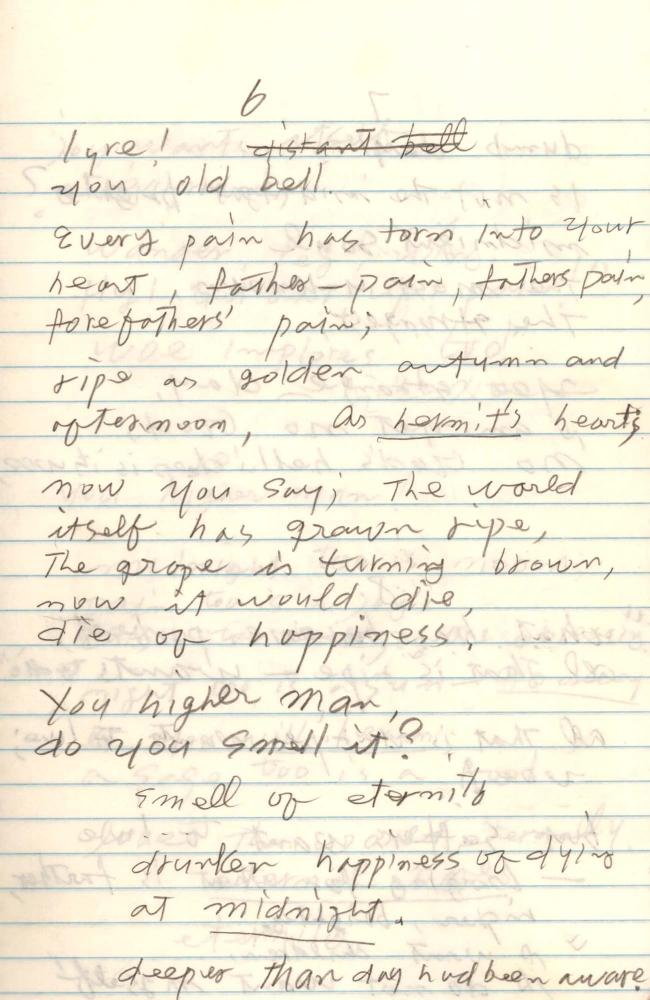 6
lyre! distant bell
you old bell.
Every pain has torn into your
heart, father-pain, fathers pain,
forefathers' pain;
ripe as golden autumn and
afternoon, as hermit's hearts
now you say; The world
itself has grown ripe,
The grape is turning brown,
now it would die,
die of happiness.
You higher man,
do you smell it?
smell of eternity
drunken happiness of dying
at midnight.
deeper than day had been aware.